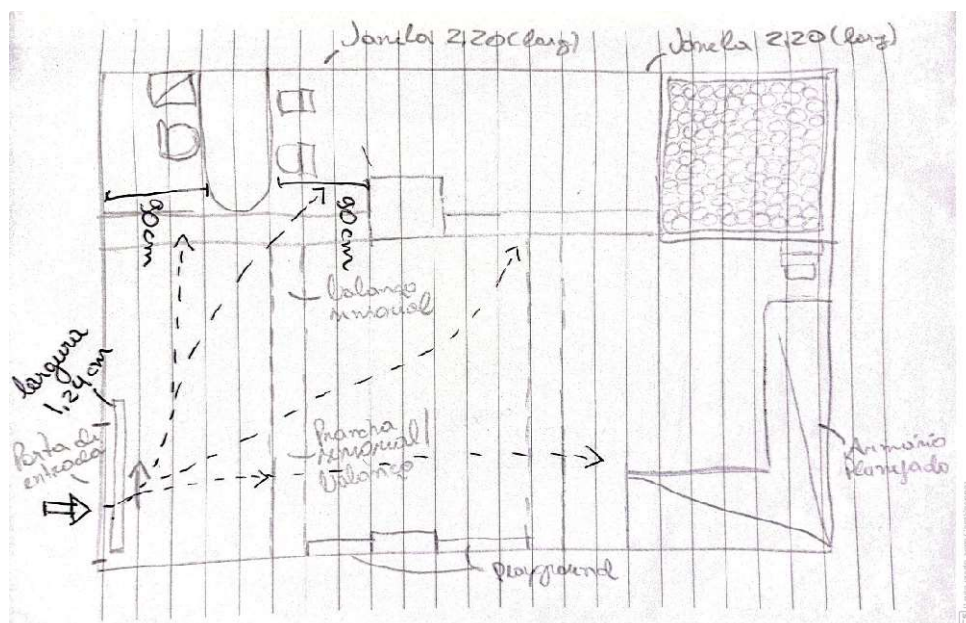 Janela 2,20 (larg)
Janela 2,20 (larg)
90cm
90cm
balanço
sensorial
largura
1,24 cm
Porta de
entrada
Prancha
sensorial/
balanço
Armário
planejado
playground